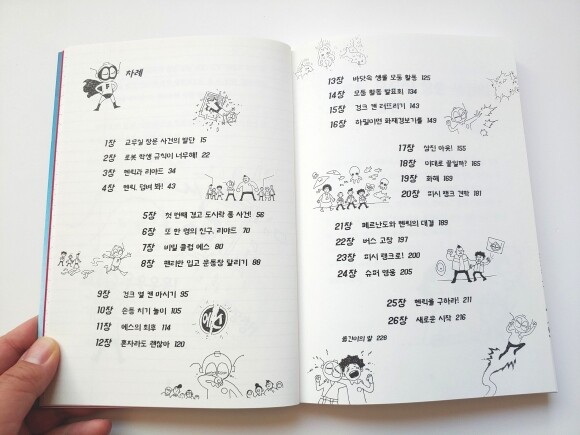 차례
1장 교무실 창문 사건의 발단 15
2장 로봇 학생 규칙이 너무해! 22
3장 헨릭과 리야드 34
4장 헨릭, 덤벼 봐! 43
5장 첫 번째 경고 도시락 통 사건! 56
6장 또 한 명의 친구, 리야드 70
7장 비밀 클럽 에스 80
8장 팬티만 입고 운동장 달리기 88
9장 경크 열 캔 마시기 95
10장 손등 치기 놀이 105
11장 에스의 최후 114
12장 혼자라도 괜찮아 120
에스
F
13장 바닷속 생물 모둠 활동 125
14장 모둠 활동 발표회 134
15장 경크 캔 터뜨리기 143
16장 하필이면 화재경보기를 149
17장 당진 아웃! 155
18장 이대로 끝일까? 165
19장 화해 169
20장 피시 탱크 견학 181
21장 페르난도와 헨릭의 대결 189
22장 버스 고장 197
23장 피시 탱크로! 200
24장 슈퍼 영웅 205
25장 헨릭을 구하라! 211
26장 새로운 시작 216
옮긴이의 말 228